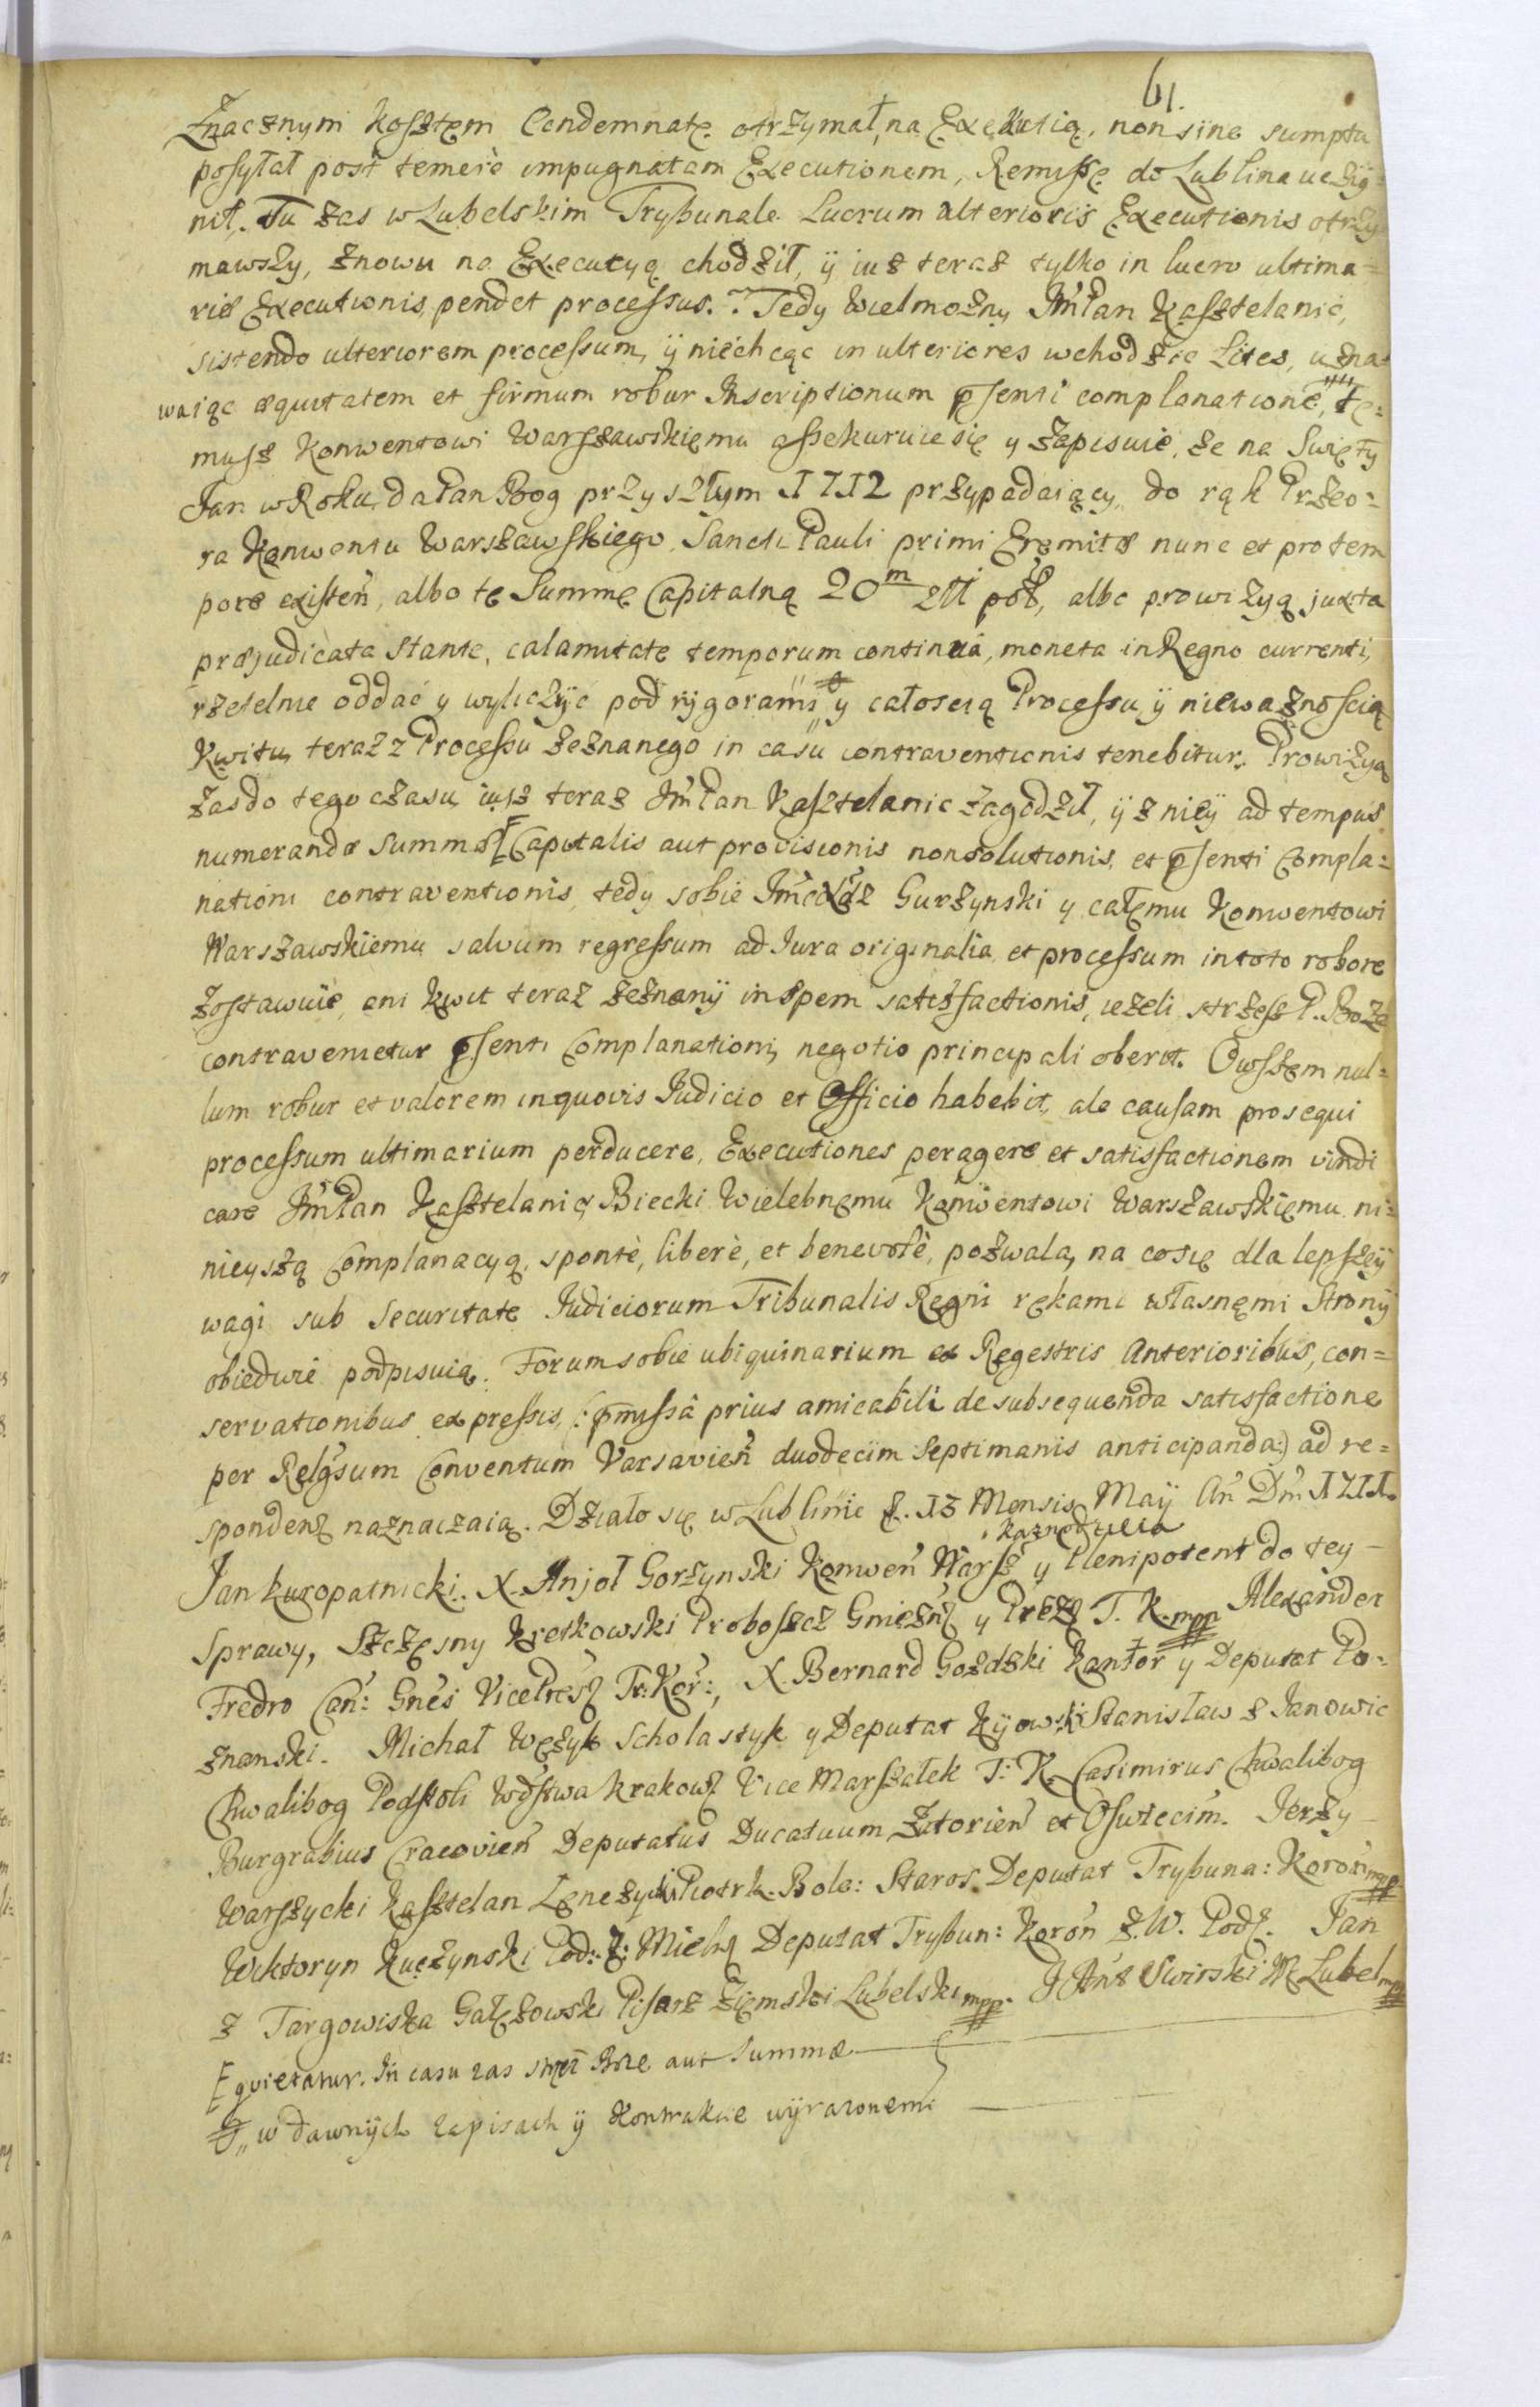 61.
Znacznym kosztem Condemnatę otrzymał, na Exekutią, non sine sumptu
posyłał post temerè impugnatam Executionem, Remissę do Lublina uczÿ=
nił. Tu zas w Lubelskim Trybunale Lucrum alterioris Executionis otrzy=
mawszy, znowu na Executyą chodził, ÿ iuz teraz tylko in lucro ultima=
riæ Executionis, pendet processus. Tedy Wielmozny JmPan Kasztelanic,
sistendo ulteriorem processum, ÿ niechcąc in ulteriores wchodzić Lites, uzna=
waiąc æquitatem et firmum robur Inscriptionum pſenti complanatione, te=
musz Konwentowi Warszawskięmu assekuruie się y zapisuie, ze na Swięty
Jan w Roku, da Pan Bog przyszłym 1712 przypadaiący, do rąk Przeo=
ra Konwentu Warszawskiego Sancti Pauli primi Eremitæ nunc et pro tem
pore existeñ, albo tę Summę Capitalną 20m złł pol, albo prowizyą juxta
præjudicata stante, calamitate temporum continuâ, moneta in Regno currenti,
rzetelnie oddać y wyliczÿc pod rÿgorami y całoscią Processu ÿ niewaznoscią
Kwitu, teraz z Processu zeznanego in casu contraventionis tenebitur. Prowizyą
zas do tego czasu iusz teraz JmPan Kasztelanic zagodził, ÿ z nieÿ ad tempus
numerandæ Summæ Capitalis aut provisionis nonsolutionis, et pſenti Compla=
nationi contraventionis, tedy sobie Jmc Xdz Gurzynski y całęmu Konwentowi
Warszawskiemu salvum regressum ad Jura originalia et processum in toto robore
zostawuie, ani kwit teraz zeznanÿ in spem satisfactionis, iezeli strzesz P. Boze
contravenietur pſenti Complanationi, negotio principali oberit. Owszem nul=
lum robur et valorem in quovis Judicio et Officio habebit, ale causam prosequi
processum ultimarium perducere, Executiones peragere et satisfactionem vindi
care JmPan Kasztelanic Biecki Wielebnęmu Konwentowi Warszawskięmu ni=
nieyszą Complanacyą, spontè, liberè, et benevolè, pozwala, na co się dla lepszeÿ
wagi sub Securitate Judiciorum Tribunalis Regni rękami własnęmi Stronÿ
obiedwie podpisuią. Forum sobie ubiquinarium ex Regestris Anterioribus, con=
servationibus expressis, (: pmissâ prius amicabili de subsequenda satisfactione
per Relgsum Conventum Varsavieñ duodecim Septimanis anticipanda :) ad re=
spondenz naznaczaią. Działo się w Lublinie d. 13 Mensis Maÿ An Dm 1711.
kaznodzieia
Jan Kuropatnicki. X. Anjoł Gorzynski Konweñ Warsz y Plenipotent do tey
Sprawy, Szczęsny Kretkowski Proboszcz Gnieznz y Prez T. K. mpp Alexander
Fredro Can: Gnes VicePresz Tr: Kor:, X. Bernard Gozdzki Kantor y Deputat Po=
znanski. Michał Węzyk Scholastyk y Deputat Kÿowski Stanisław z Janowic
Chwalibog Podstoli Wdstwa krakowz Vice Marszałek T: K. Casimirus Chwalibog
Burgrabius Cracovieñ Deputatus Ducatuum Zatorieñ et Oswiecim. Jerzy
Warszycki Kasztelan Lęnczycki Piotrk. Bole: Staros. Deputat Trybuna: Koron mpp
Wiktoryn Kuczynski Pod: Z: Mielnz Deputat Trybun: Koroñ Z. W. Podz. Jan
z Targowiska Gałęzowski Pisarz Ziemski Lubelski mpp. Swirski Lubel mpp
quietatur. In casu zas aut Summæ
w dawnÿch zapisach ÿ Kontrakcie wÿrazonemi